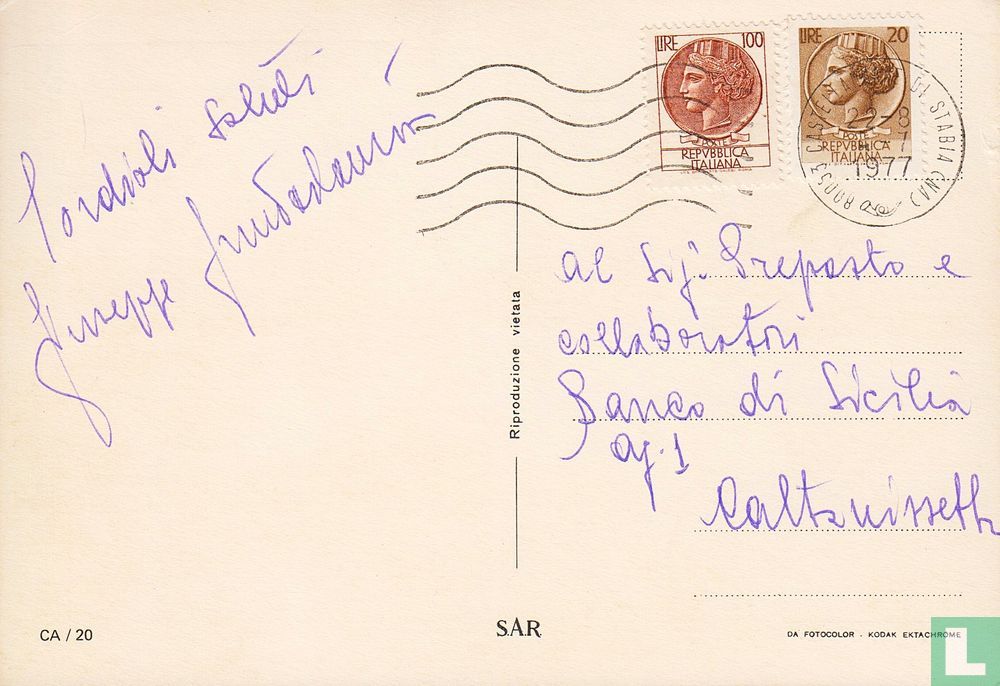 Cordiali saluti
Giuseppe
LIRE 100
POSTE
REPVBBLICA
ITALIANA
LIRE 20
POSTE
REPVBBLICA
ITALIANA
80053 CASTELL DI STABIA (NA)
1977
Al Sig. Preposto e
collaboratori
Banco di Sicilia
Ag. 1
Caltanissetta
Riproduzione vietata
CA / 20
SAR
DA FOTOCOLOR - KODAK EKTACHROME
L